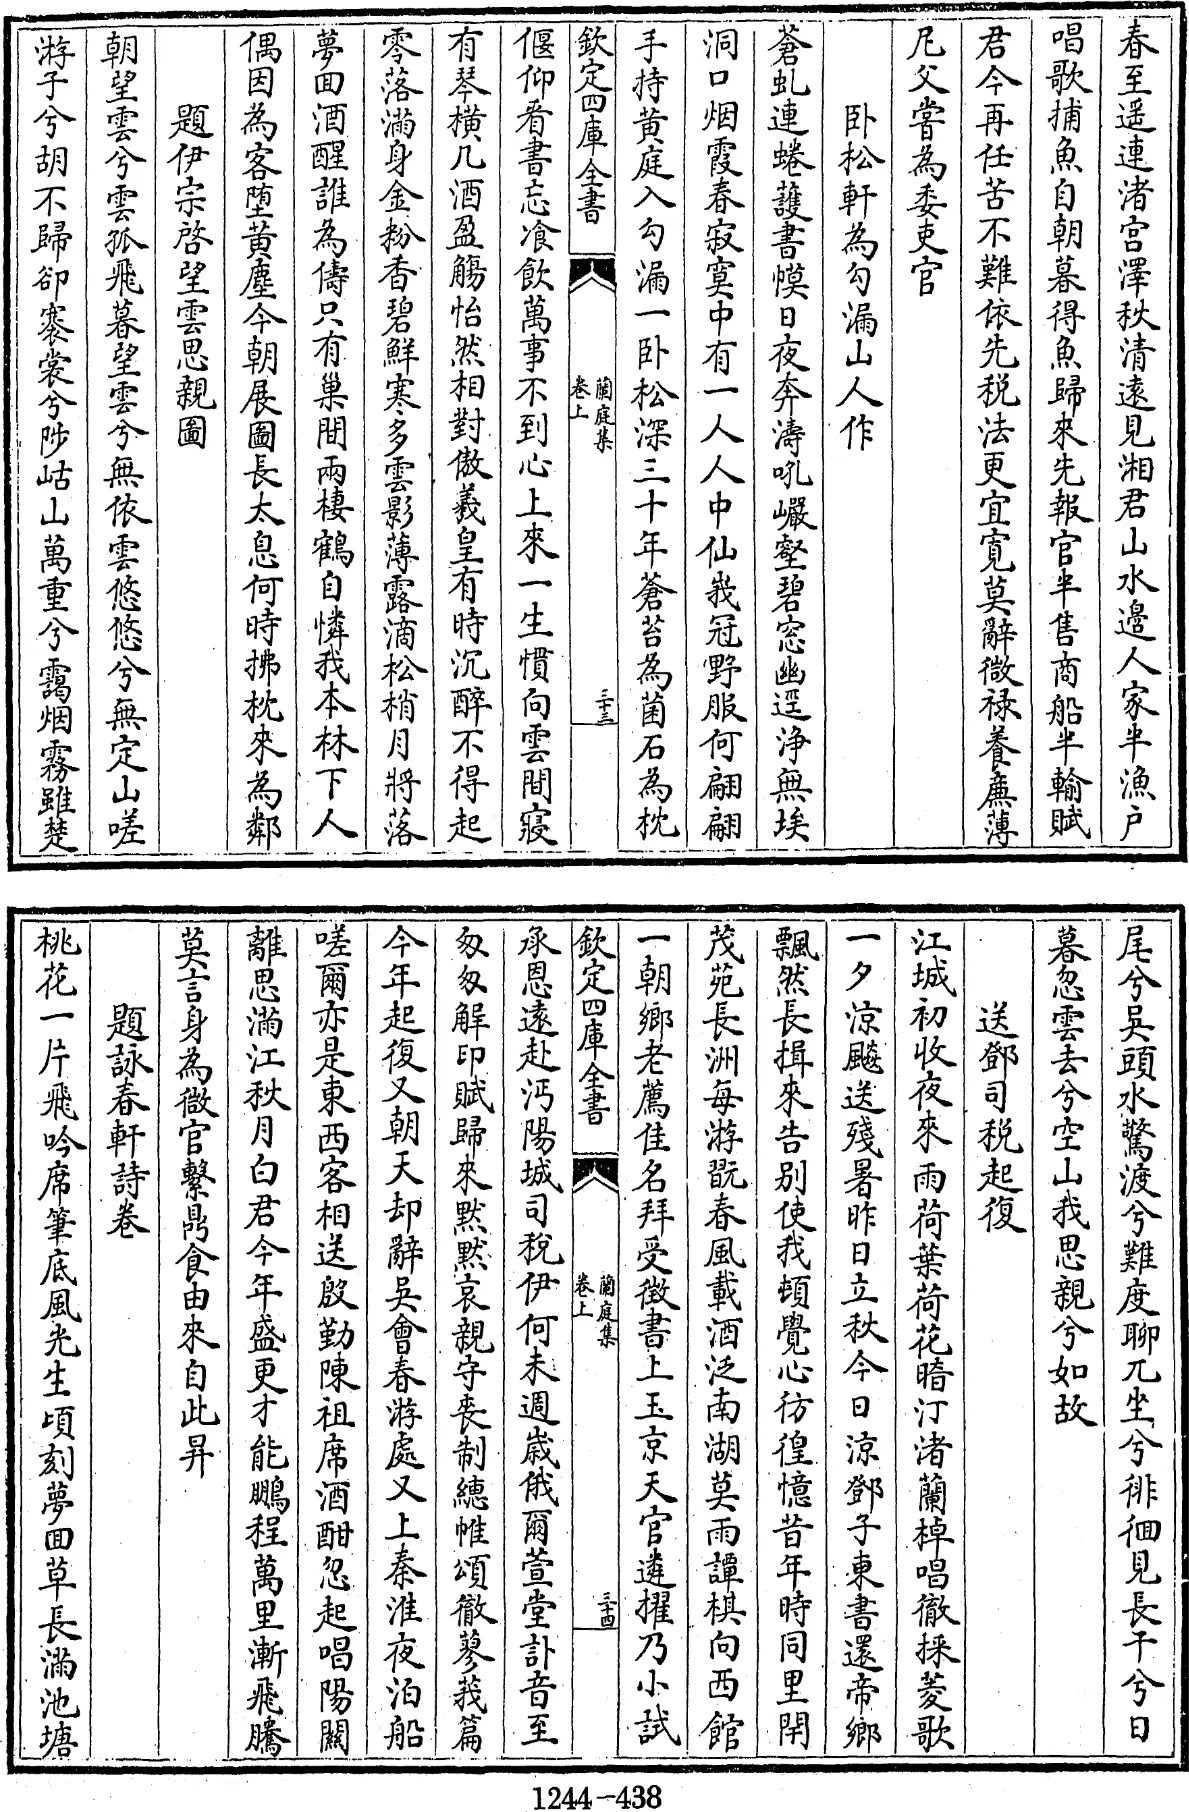 春至遥連渚宫澤秋清遠見湘君山水邉人家半漁户
唱歌捕魚自朝暮得魚歸來先報官半售商船半輸賦
君今再任苦不難依先税法更宜寛莫辭微禄養廉薄
尼父嘗為委吏官
卧松軒為勾漏山人作
蒼虬連蜷護書幌日夜奔濤吼巖壑碧窓幽逕浄無埃
洞口烟霞春寂寞中有一人人中仙峩冠野服何翩翩
手持黄庭入勾漏一卧松深三十年蒼苔為茵石為枕
欽定四庫全書
蘭庭集
卷上
三十三
偃仰看書忘飡飲萬事不到心上來一生慣向雲間寢
有琴横几酒盈觴怡然相對傲羲皇有時沉醉不得起
零落滿身金粉香碧鮮寒多雲影薄露滴松梢月將落
夢回酒醒誰為儔只有巢間兩棲鶴自憐我本林下人
偶因為客堕黄塵今朝展圖長太息何時拂枕來為鄰
題伊宗啓望雲思親圖
朝望雲兮雲孤飛暮望雲兮無依雲悠悠兮無定山嗟
游子兮胡不歸卻褰裳兮陟岵山萬重兮靄烟霧雖楚
尾兮吳頭水驚渡兮難度聊兀坐兮徘徊見長干兮日
暮忽雲去兮空山我思親兮如故
送鄧司税起復
江城初收夜來雨荷葉荷花暗汀渚蘭棹唱徹採菱歌
一夕涼飈送殘暑昨日立秋今日涼鄧子東書還帝鄉
飄然長揖來告别使我頓覺心彷徨憶昔年時同里閈
茂苑長洲每游翫春風載酒泛南湖莫雨譚棋向西館
一朝鄉老薦佳名拜受徵書上玉京天官遴擢乃小試
欽定四庫全書
蘭庭集
卷上
三十四
承恩遠赴沔陽城司税伊何未週歳俄爾萱堂訃音至
匆匆解印賦歸來黙黙哀親守喪制繐帷頌徹蓼莪篇
今年起復又朝天却辭吳會春游處又上秦淮夜泊船
嗟爾亦是東西客相送殷勤陳祖席酒酣忽起唱陽闗
離思滿江秋月白君今年盛更才能鵬程萬里漸飛騰
莫言身為微官繫鼎食由來自此昇
題詠春軒詩卷
桃花一片飛吟席筆底風光生頃刻夢回草長滿池塘
1244-438